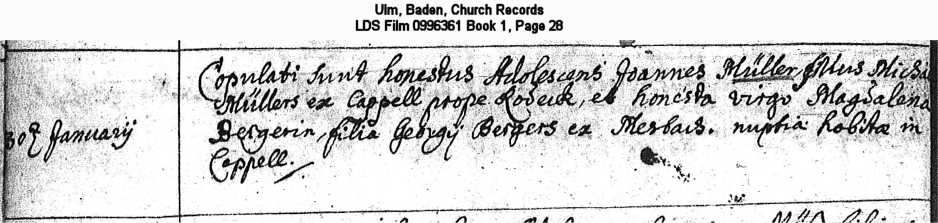 Ulm, Baden, Church Records
LDS Film 0996361 Book 1, Page 28
Copulati sunt honestus Adolescens Joannes Müller filius Micha
Müllers ex Cappell prope Rodeck, et honesta virgo Magdalena
30 January
Bergerin, filia Georgij Bergers ex Mesbach. nuptia habitæ in
Cappell.